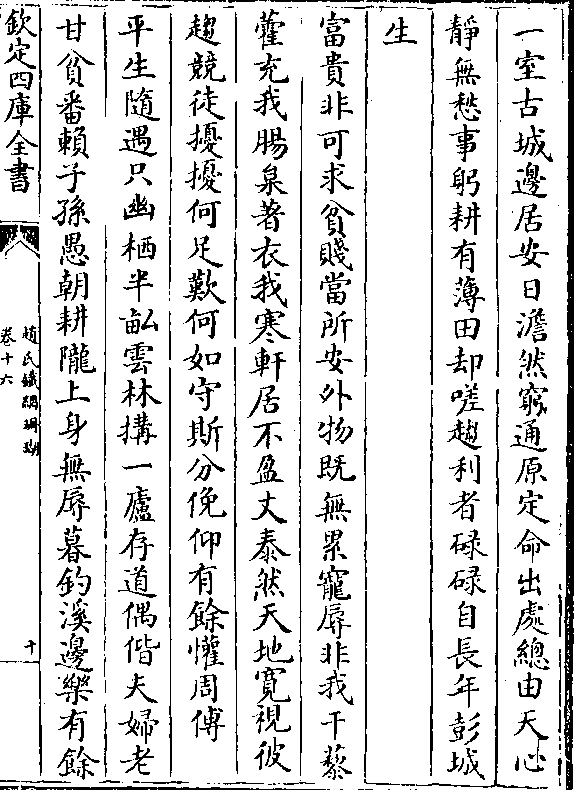 一室古城邊居安日澹然窮通原定命出處總由天心
靜無愁事躬耕有薄田却嗟趨利者碌碌自長年彭城
生
富貴非可求貧賤當所安外物既無累寵辱非我干藜
藿充我腸枲著衣我寒軒居不盈丈泰然天地寛視彼
趨競徒擾擾何足歎何如守斯分俛仰有餘懽周傅
平生隨遇只幽栖半畝雲林搆一廬存道偶偕夫婦老
甘貧番賴子孫愚朝耕隴上身無辱暮釣溪邊樂有餘
欽定四庫全書
趙氏鐵網珊瑚
卷十六
十